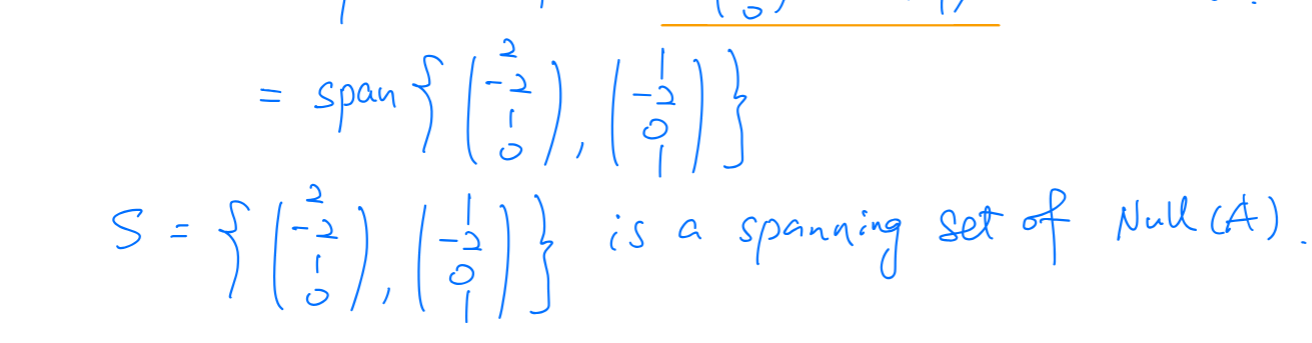 = span { (2 -2 1 0), (1 -2 0 1) }
S = { (2 -2 1 0), (1 -2 0 1) } is a spanning set of Null(A).